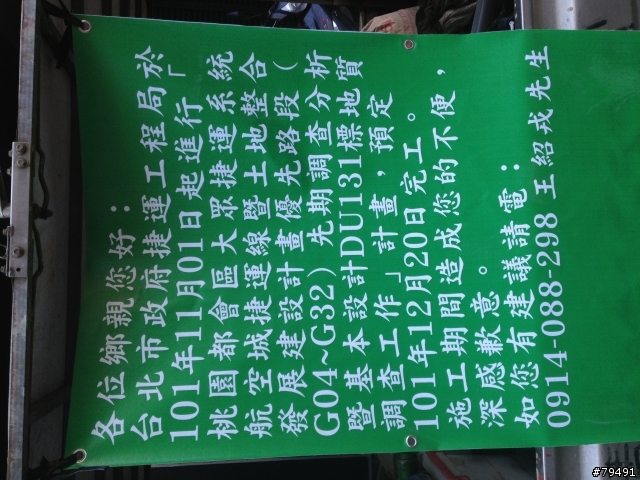 各位鄉親您好：
台北市政府捷運工程局於
101年11月01日起進行「
桃園都會區大眾捷運系統
航空城捷運線暨土地整合
發展建設計畫優先路段（
G04~G32）先期調查分析
暨基本設計DU131標地質
調查工作」計畫，預定
101年12月20日完工。
施工期間造成您的不便，
深感歉意。
如您有建議請電：
0914-088-298 王紹戎先生
#79491